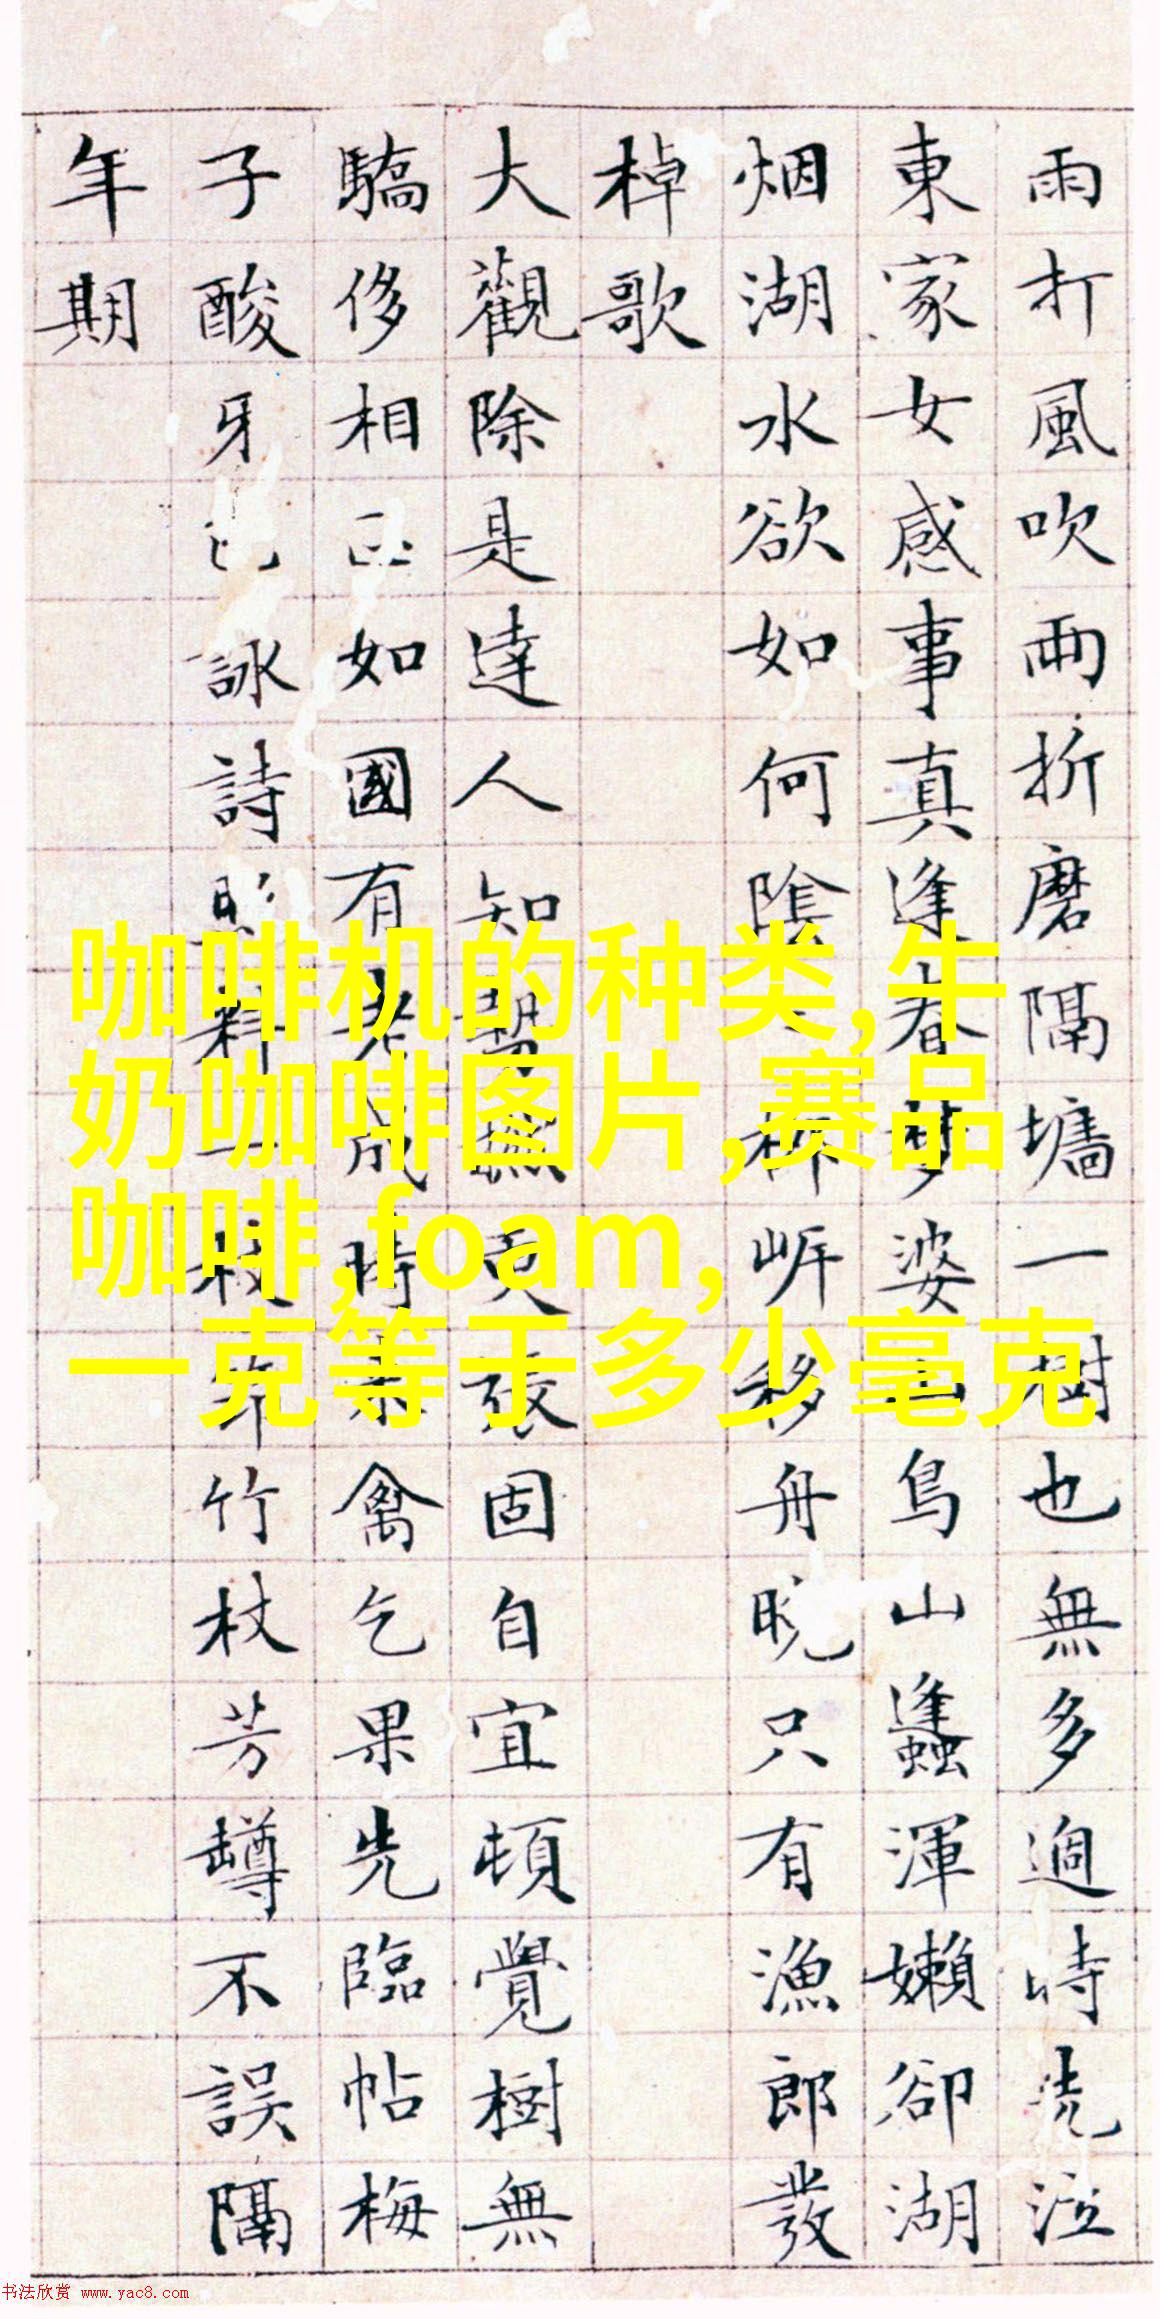 雨打風吹雨折磨隔墻一樹也無多過時洗泣
東家女感事真逢春夢婆山鳥山蠭渾嬾卻湖
烟湖水欲如何陰柳岸移舟晚只有漁郎發
棹歌
大觀除是達人知勢撫更張固自宜頓覺樹無
驕侈相正如國有老成時來禽乞果先臨帖梅
子酸牙詠詩料一枝竹杖芳罇不誤隔
年期
咖啡机的种类,牛
奶咖啡图片,赛品
咖啡,foam,
一克等于多少毫克
书法欣赏 www.yac8.com